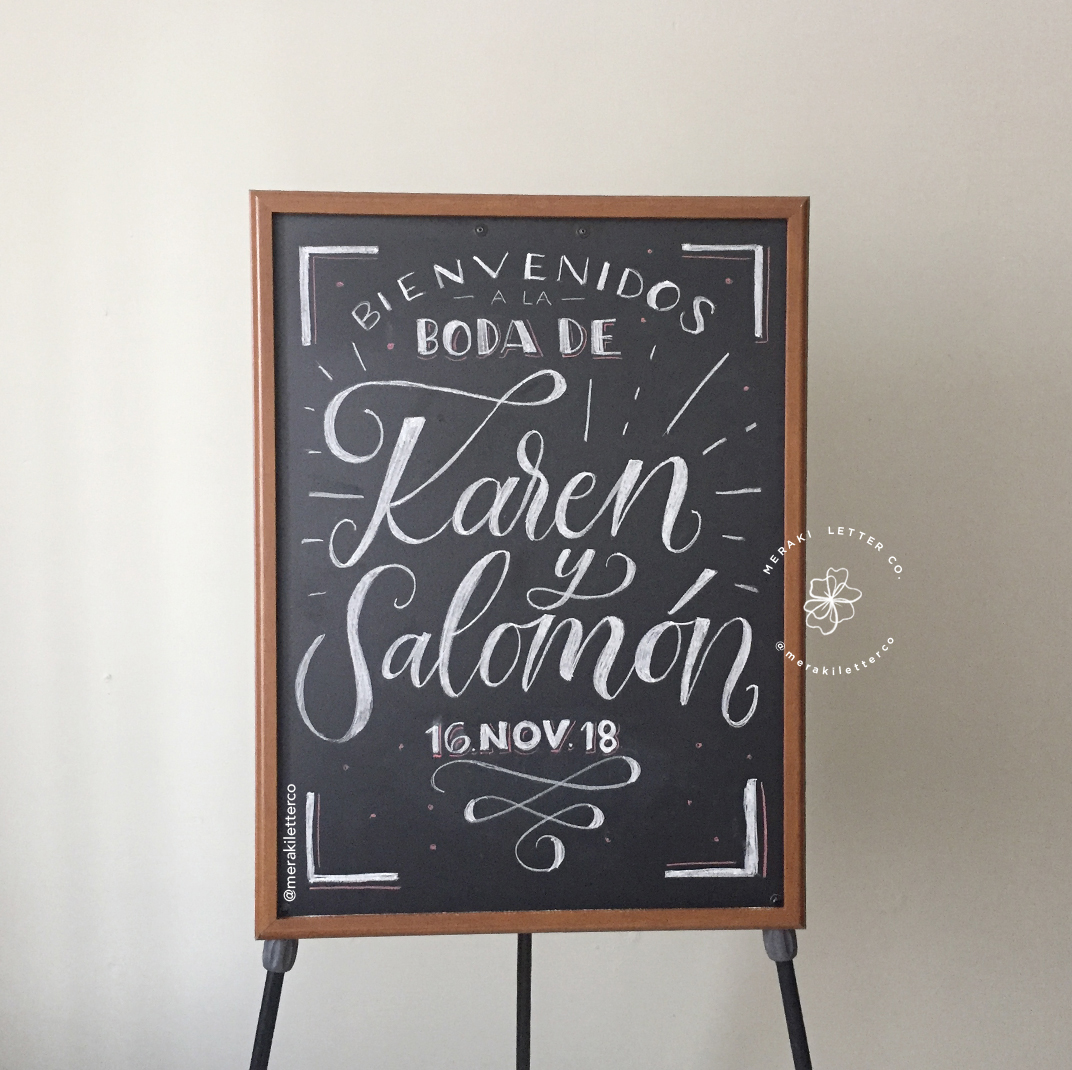 BIENVENIDOS
A LA
BODA DE
Karen
y
Salomón
16.NOV.18
@merakiletterco
MERAKI LETTER CO.
@merakiletterco